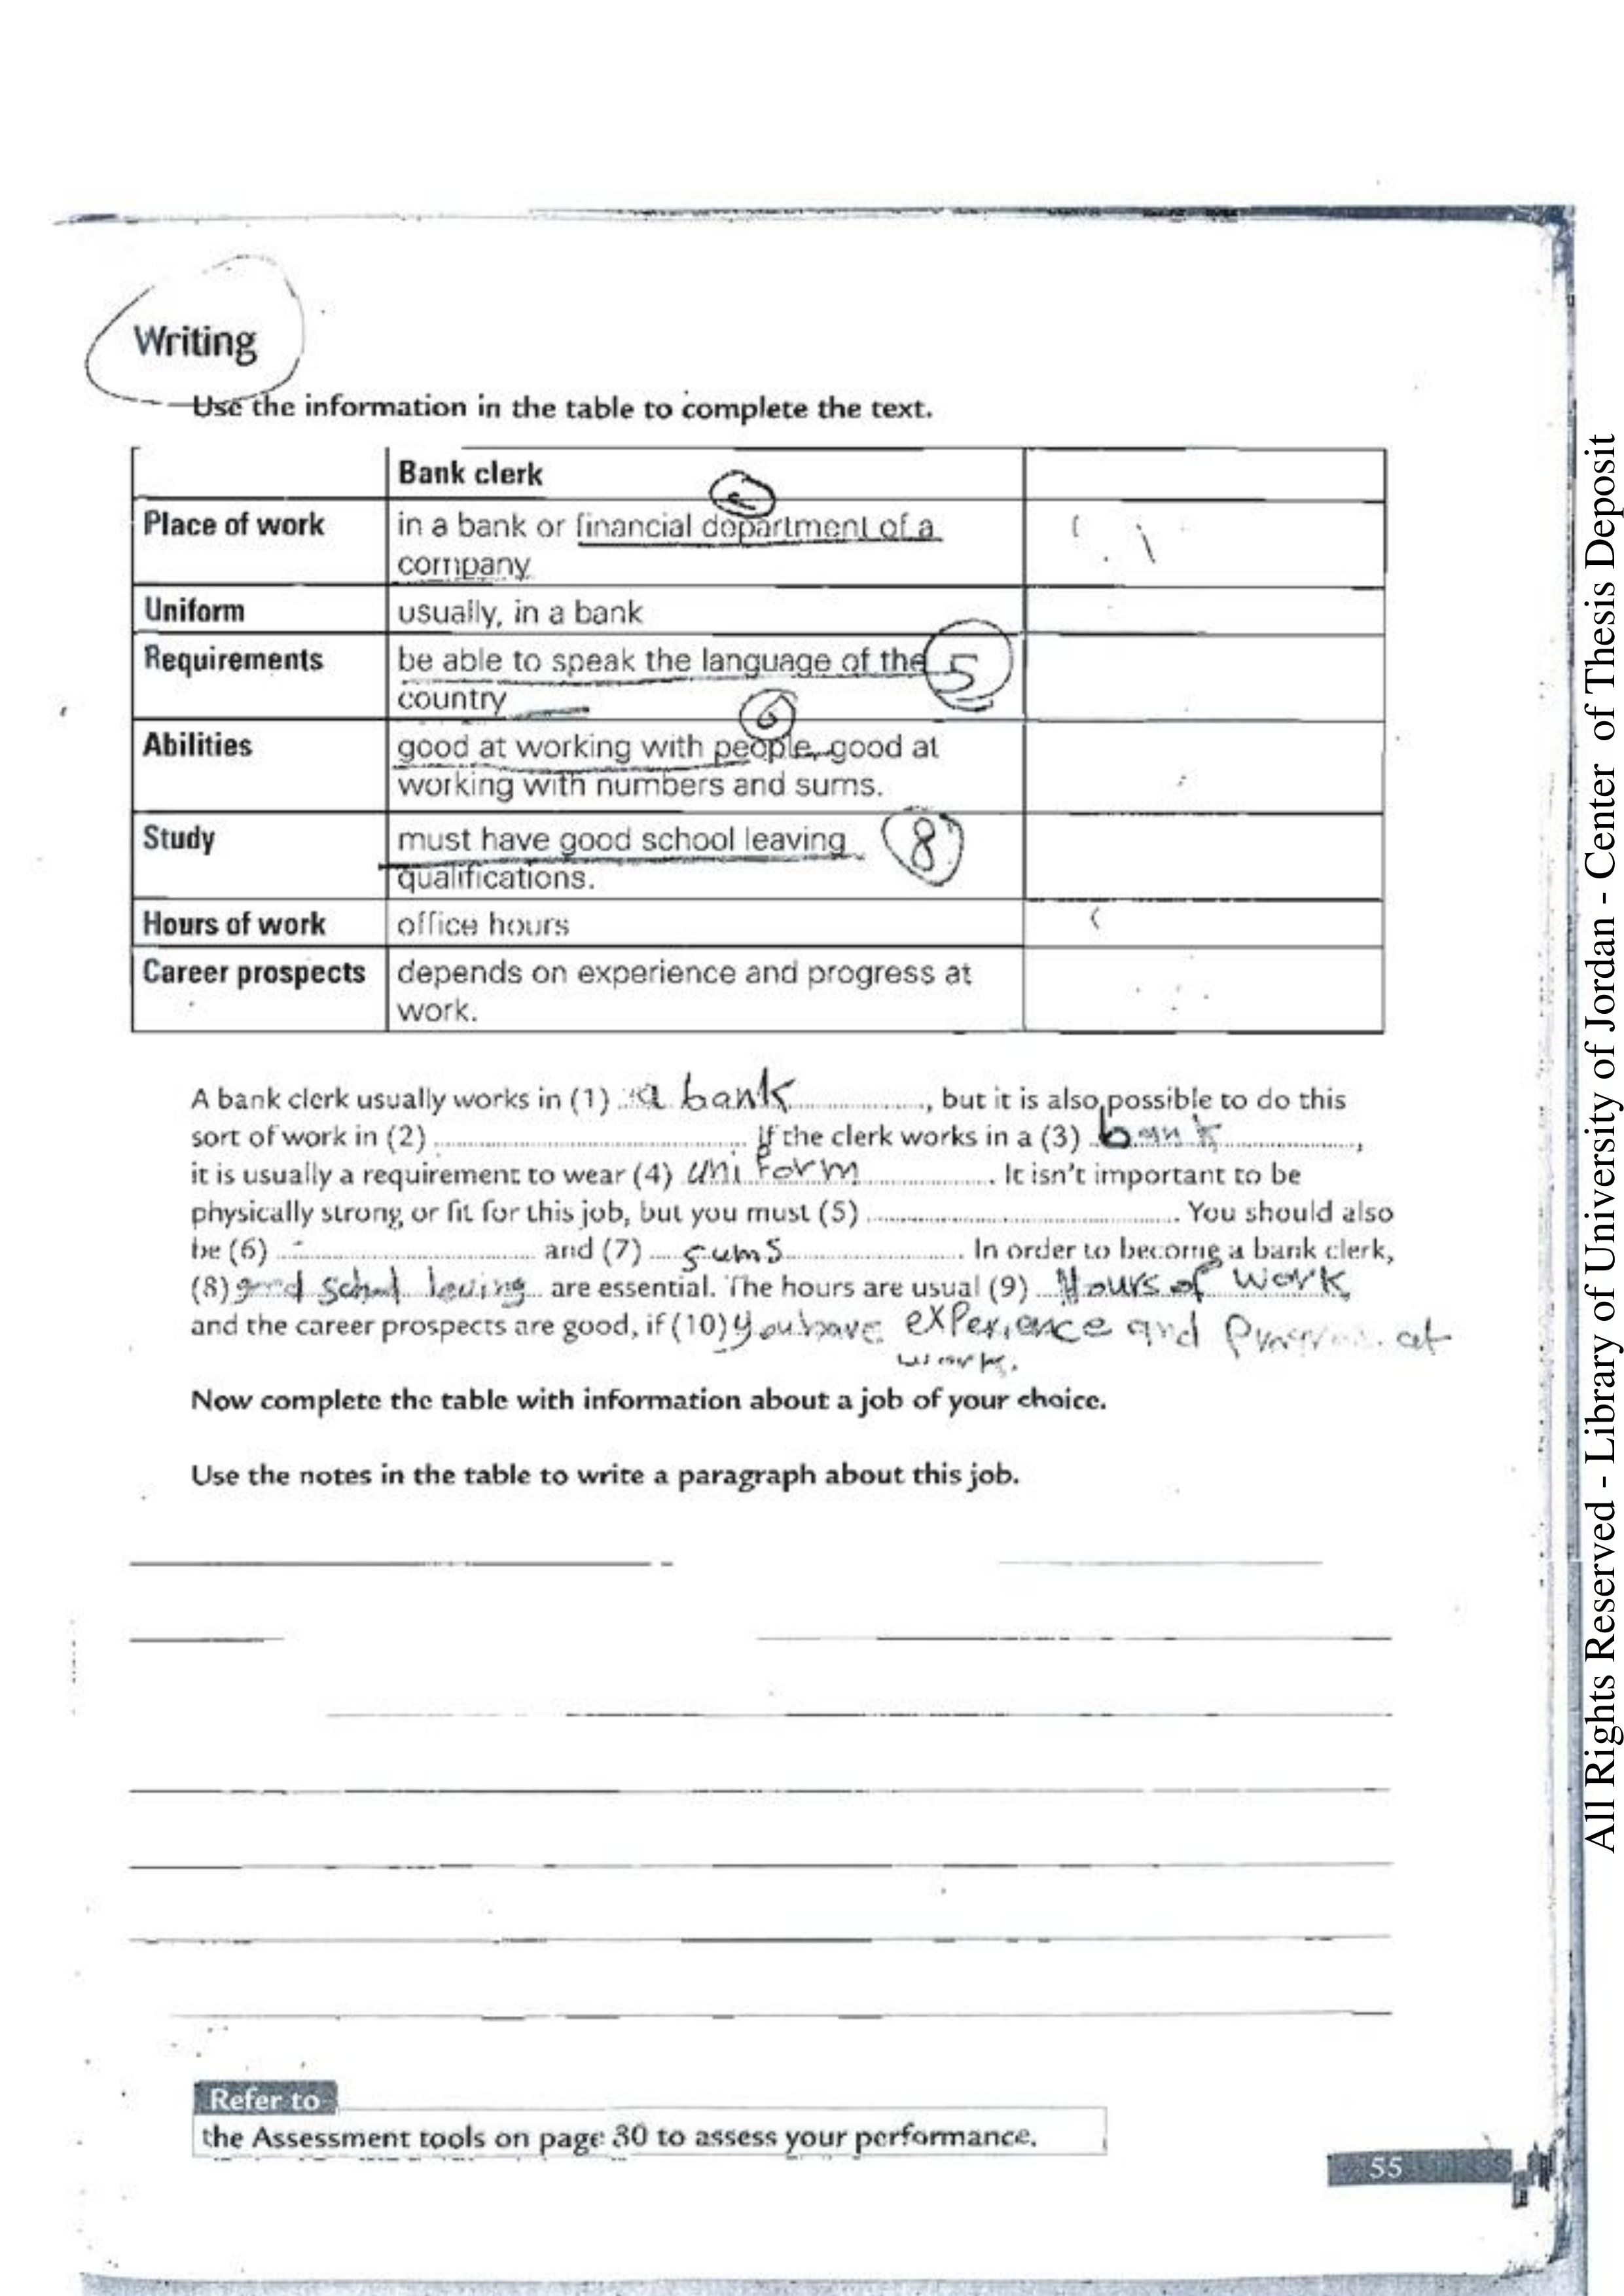 Writing
Use the information in the table to complete the text.
Bank clerk
Place of work in a bank or financial department of a
company
Uniform usually, in a bank
Requirements be able to speak the language of the 5
country
6
Abilities good at working with people, good at
working with numbers and sums.
Study must have good school leaving 8
qualifications.
Hours of work office hours
Career prospects depends on experience and progress at
work.
A bank clerk usually works in (1) a bank, but it is also possible to do this
sort of work in (2) .......... If the clerk works in a (3) bank,
it is usually a requirement to wear (4) uniform. It isn't important to be
physically strong or fit for this job, but you must (5) .......... You should also
be (6) .......... and (7) sums. In order to become a bank clerk,
(8) good leving are essential. The hours are usual (9) Hours of work
and the career prospects are good, if (10) you have experience and at
work.
Now complete the table with information about a job of your choice.
Use the notes in the table to write a paragraph about this job.
Refer to
the Assessment tools on page 80 to assess your performance.
55
All Rights Reserved - Library of University of Jordan - Center of Thesis Deposit